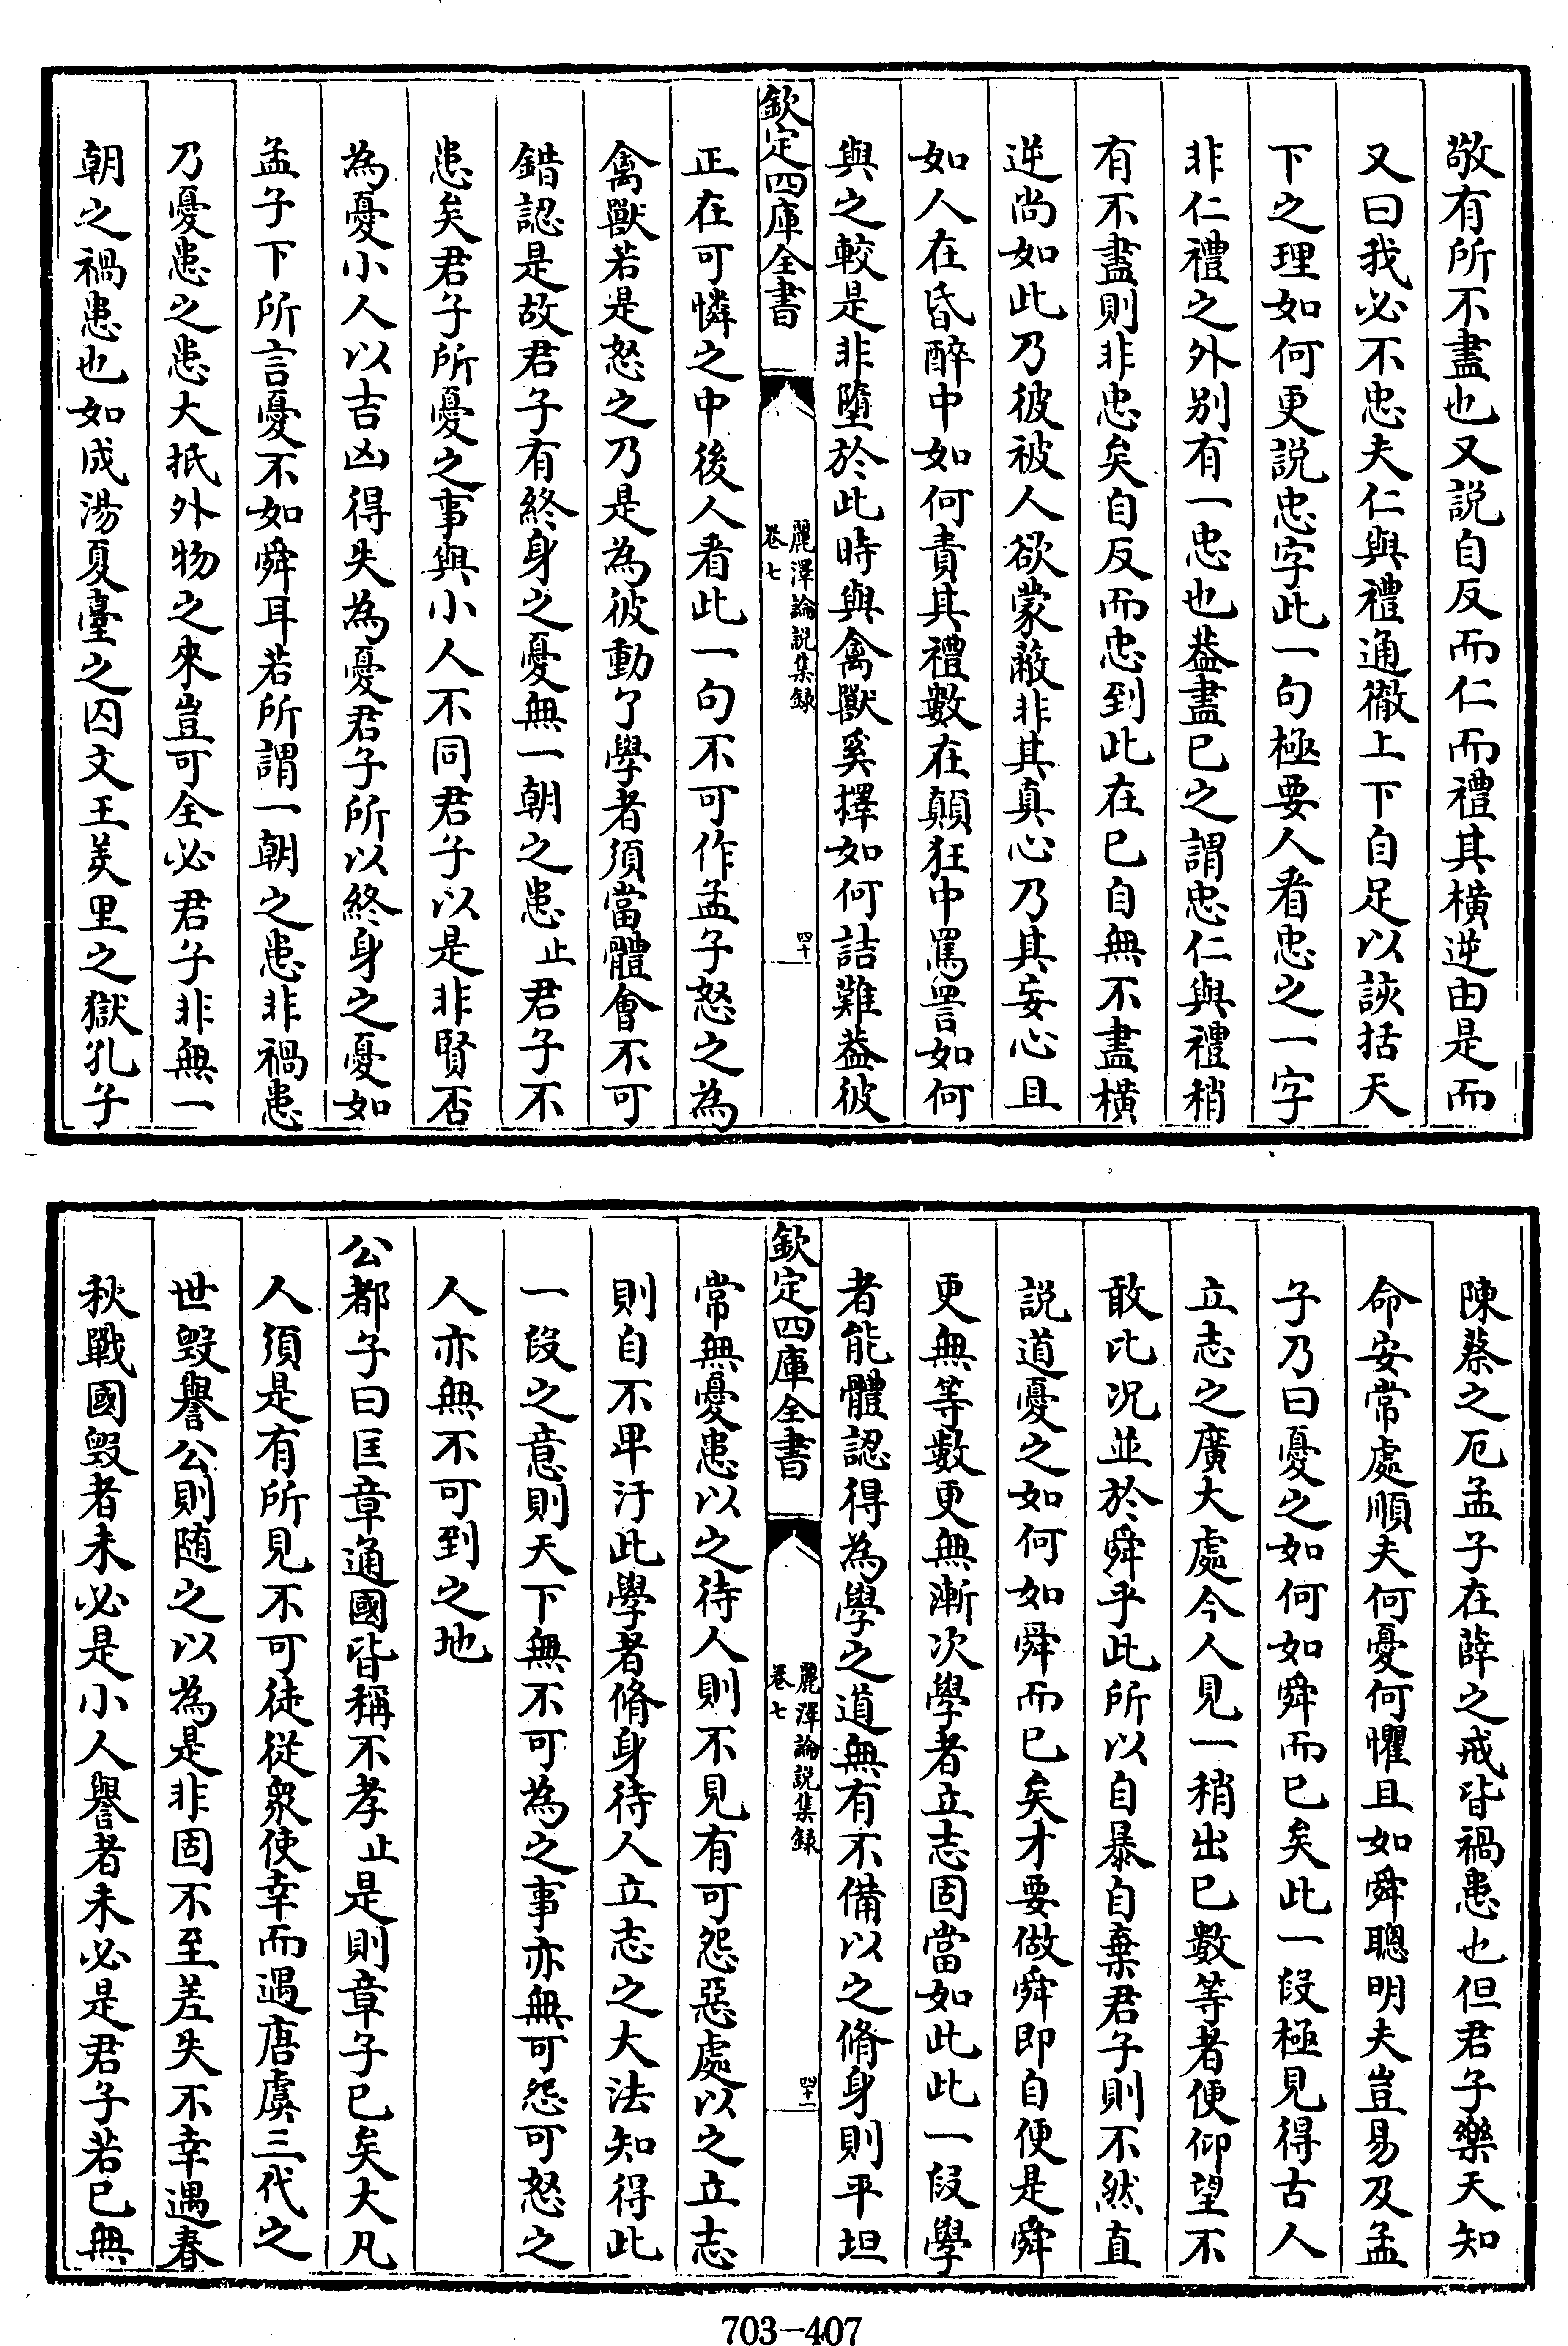 敬有所不盡也又説自反而仁而禮其横逆由是而
又曰我必不忠夫仁與禮通徹上下自足以該括天
下之理如何更説忠字此一句極要人看忠之一字
非仁禮之外别有一忠也葢盡已之謂忠仁與禮稍
有不盡則非忠矣自反而忠到此在已自無不盡横
逆尚如此乃彼被人欲蒙蔽非其真心乃其妄心且
如人在昏醉中如何責其禮數在顛狂中罵詈如何
與之較是非墮於此時與禽獸奚擇如何詰難葢彼
欽定四庫全書
麗澤論説集録
卷七
四十
正在可憐之中後人看此一句不可作孟子怒之為
禽獸若是怒之乃是為彼動了學者須當體會不可
錯認是故君子有終身之憂無一朝之患止君子不
患矣君子所憂之事與小人不同君子以是非賢否
為憂小人以吉凶得失為憂君子所以終身之憂如
孟子下所言憂不如舜耳若所謂一朝之患非禍患
乃憂患之患大抵外物之來豈可全必君子非無一
朝之禍患也如成湯夏臺之囚文王羑里之獄孔子
陳蔡之厄孟子在薛之戒皆禍患也但君子樂天知
命安常處順夫何憂何懼且如舜聰明夫豈易及孟
子乃曰憂之如何如舜而已矣此一段極見得古人
立志之廣大處今人見一稍出已數等者便仰望不
敢比况並於舜乎此所以自暴自棄君子則不然直
説道憂之如何如舜而已矣才要做舜即自便是舜
更無等數更無漸次學者立志固當如此此一段學
者能體認得為學之道無有不備以之脩身則平坦
欽定四庫全書
麗澤論説集録
卷七
四十一
常無憂患以之待人則不見有可怨惡處以之立志
則自不卑汙此學者脩身待人立志之大法知得此
一段之意則天下無不可為之事亦無可怨可怒之
人亦無不可到之地
公都子曰匡章通國皆稱不孝止是則章子已矣大凡
人須是有所見不可徒從衆使幸而遇唐虞三代之
世毁譽公則随之以為是非固不至差失不幸遇春
秋戰國毁者未必是小人譽者未必是君子若已無
703-407